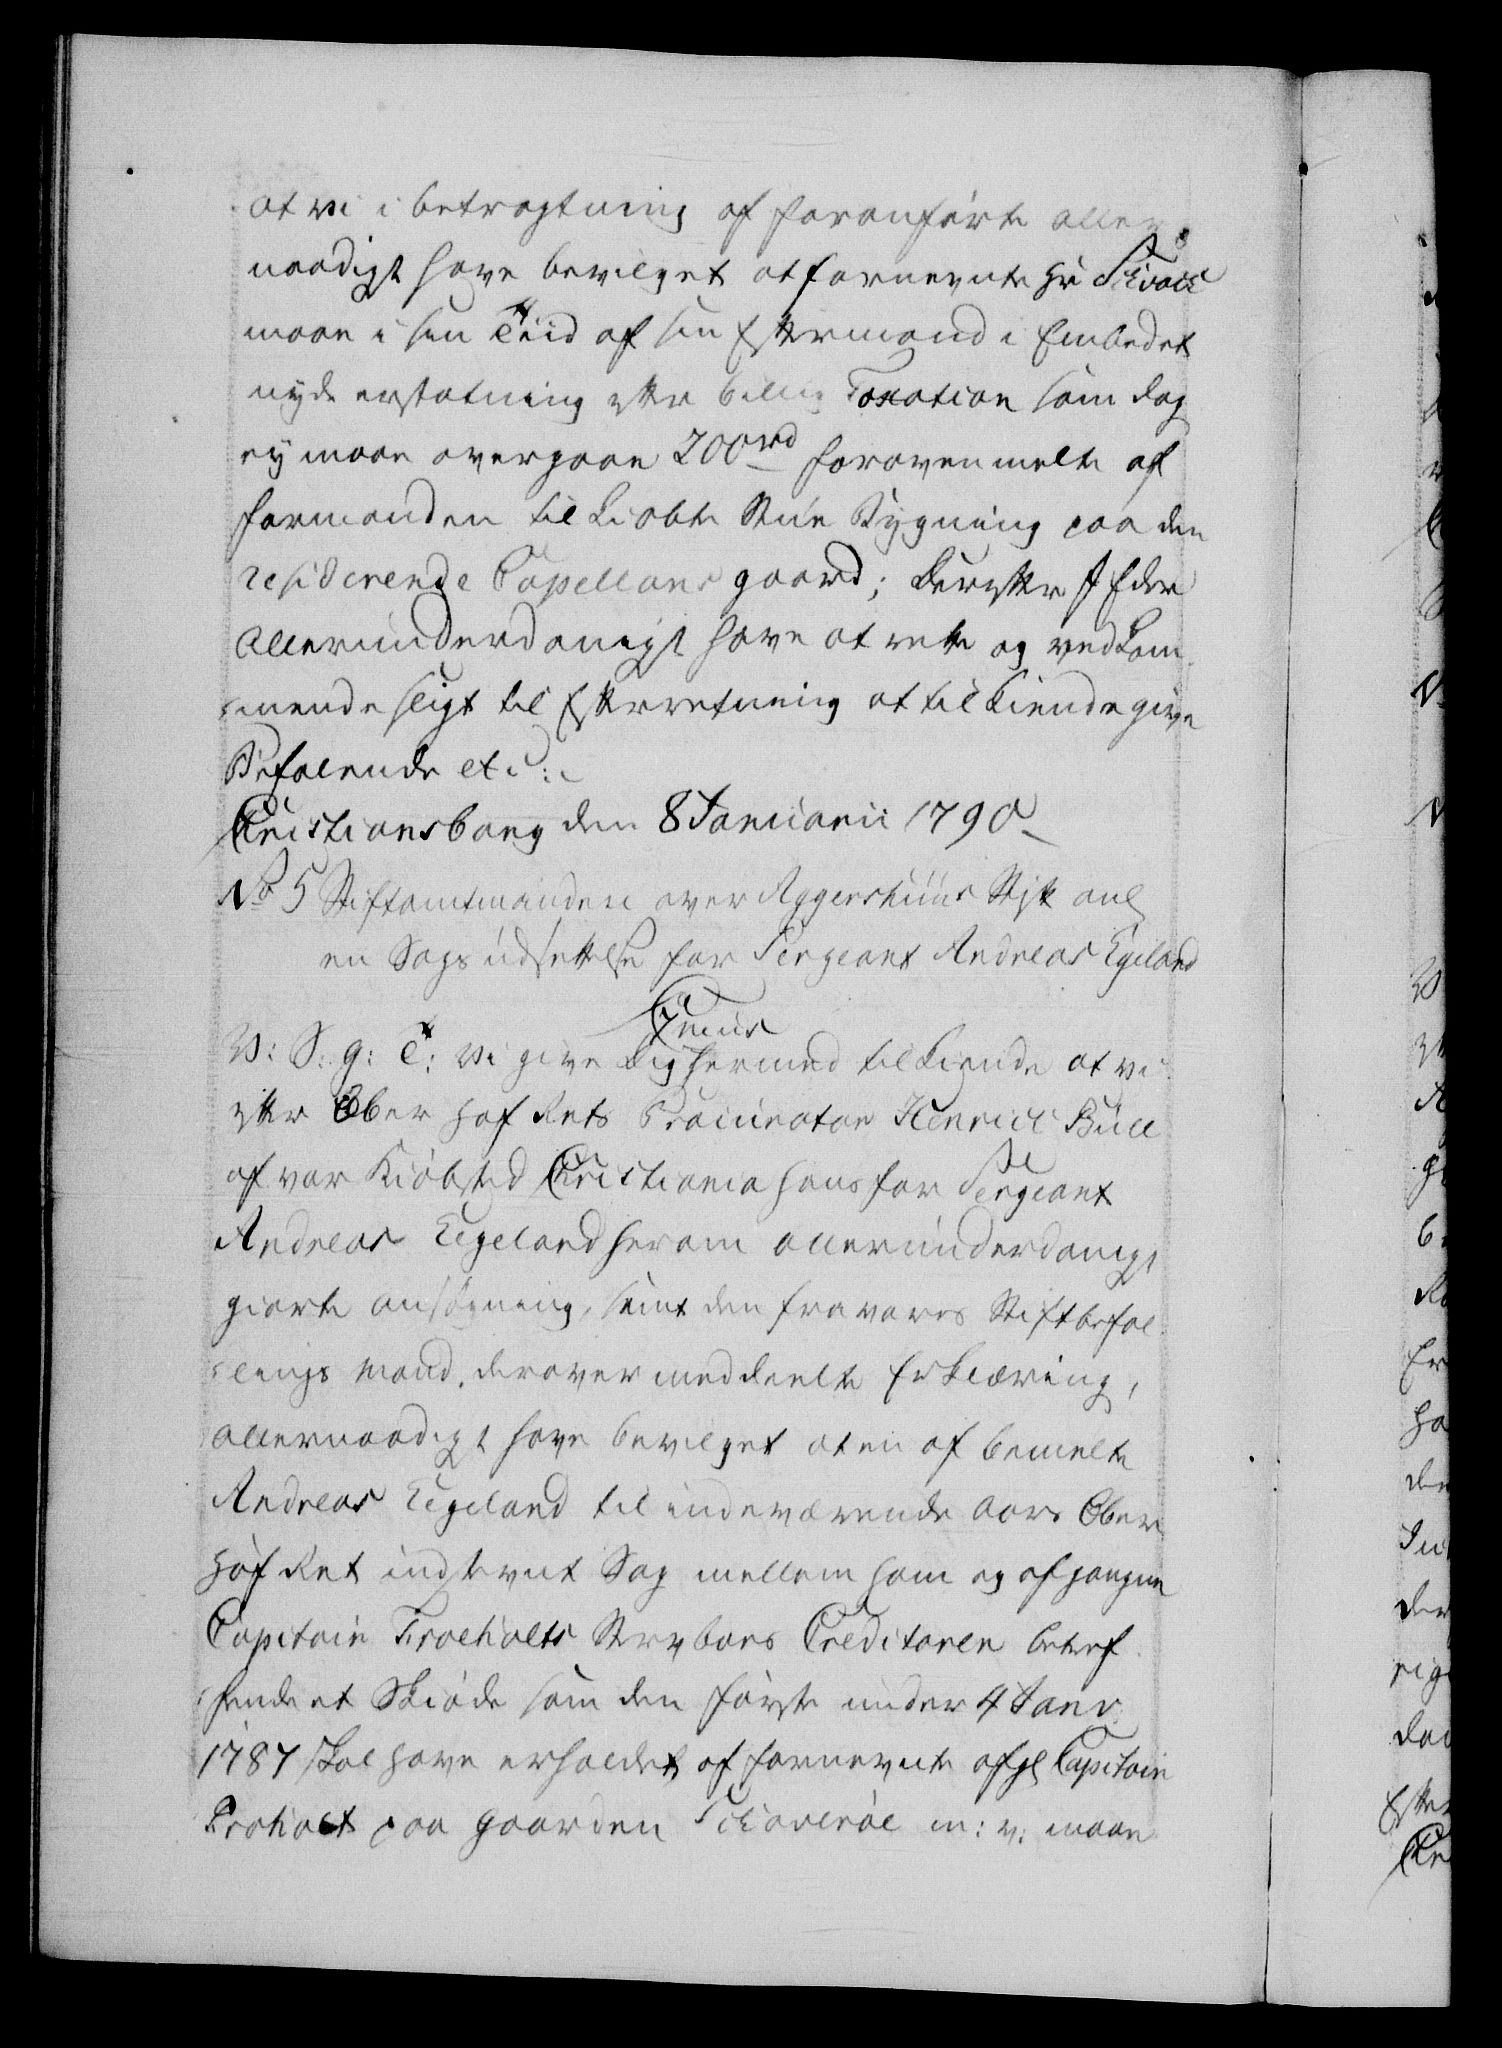 at vi i betragtning af foranførte aller-
naadigst have bevilget at fornevnte Hr
maae i sin Tiid af sin Eftermand i Embedet
nyde erstatning efter billig Taxation som dog
ey maae overgaae 200 rd for ovenmelte af
formanden til Kiøbte Stue Bygning paa den
residerende Capellans gaard; Derefter I Eder
allerunderdanigst have at rette og vedkom-
mende sligt til Efterretning at tilkiendegive
Befalende etc:
Christiansborg den 8 Januarii 1790
No 5 Stiftamtmanden over Aggershuus Stift anl
en Sags udsettelse for Sergeant Andreas Egeland
Cruus
V: S: g: T: vi give dig hermed tilkiende at vi
efter Ober Hof Rets Procurator Henrich Bull
af vor Kiøbsted Christiania hans for Sergeant
Andreas Egeland herom allerunderdanigst
giorte ansøgning, samt den fra vores Stiftbefal-
lings Mand, derover meddeelte Erklæring,
allernaadigst have bevilget at en af bemelte
Andreas Egeland til indeværende Aars Ober
Hof Ret indstevnt Sag mellem ham og afgangne
Capitain Froeholts Sterboes Creditorer betref-
fende et Skiøde som den første under 4 Janv:
1787 skal have erholdet af fornevnte afg Capitain
Froholt paa gaarden m: v: maae